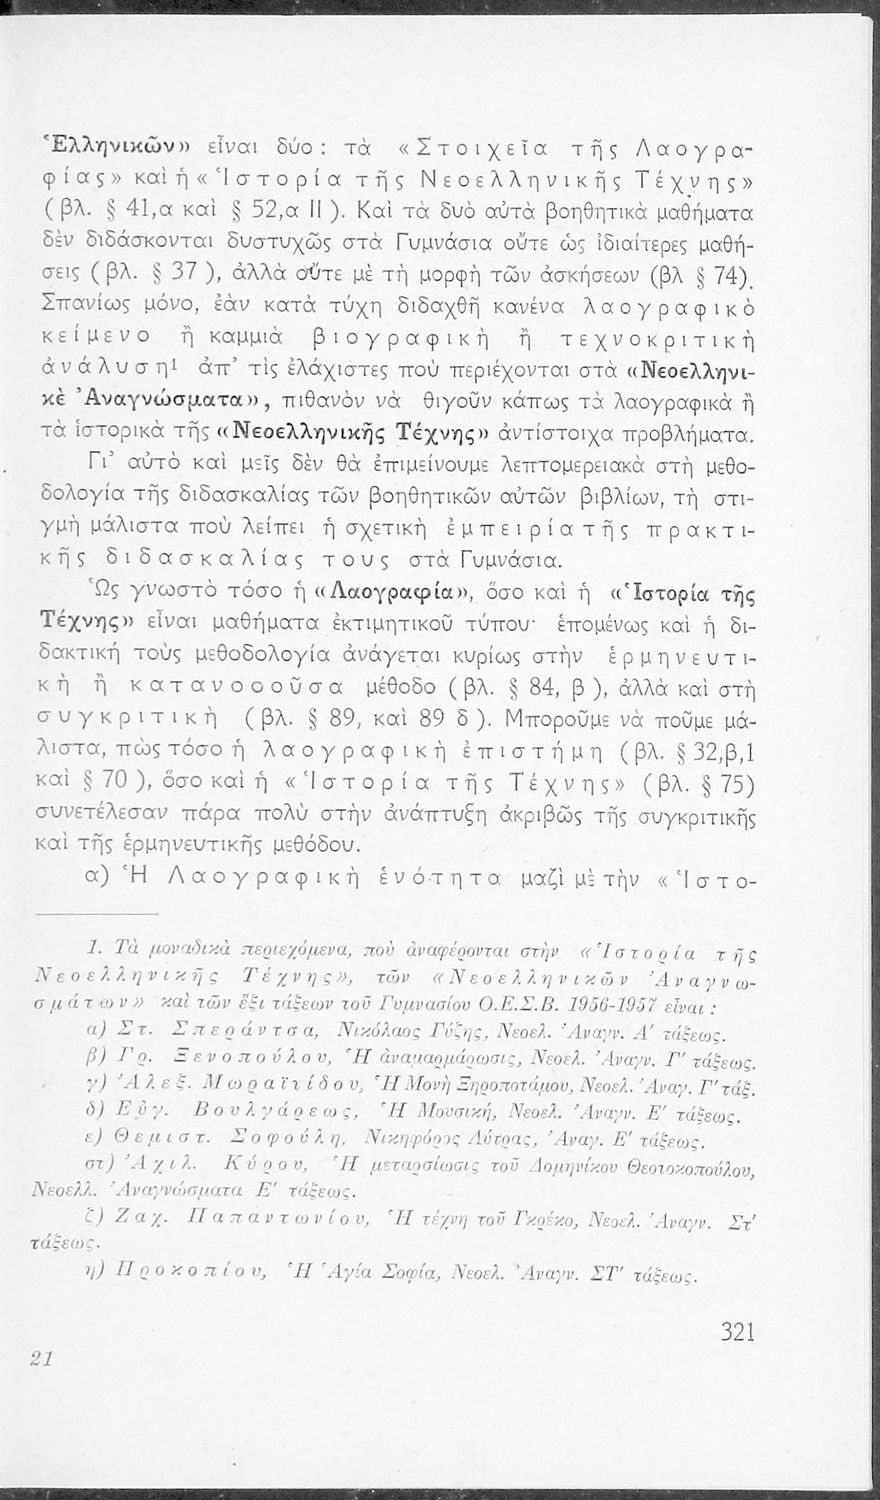 Ἑλληνικῶν» εἶναι δύο : τὰ «Στοιχεῖα τῆς Λαογρα-
φίας» καὶ ἡ «Ἱστορία τῆς Νεοελληνικῆς Τέχνης»
(βλ. § 41,α καὶ § 52,α ΙΙ ). Καὶ τὰ δυὸ αὐτὰ βοηθητικὰ μαθήματα
δὲν διδάσκονται δυστυχῶς στὰ Γυμνάσια οὔτε ὡς ἰδιαίτερες μαθή-
σεις (βλ. § 37 ), ἀλλὰ οὔτε μὲ τὴ μορφὴ τῶν ἀσκήσεων (βλ § 74).
Σπανίως μόνο, ἐὰν κατὰ τύχη διδαχθῆ κανένα λαογραφικὸ
κείμενο ἢ καμμιὰ βιογραφικὴ ἢ τεχνοκριτικὴ
ἀνάλυση¹ ἀπ’ τὶς ἐλάχιστες ποὺ περιέχονται στὰ «Νεοελληνι-
κὲ Ἀναγνώσματα», πιθανὸν νὰ θιγοῦν κάπως τὰ λαογραφικὰ ἢ
τὰ ἱστορικὰ τῆς «Νεοελληνικῆς Τέχνης» ἀντίστοιχα προβλήματα.
Γι’ αὐτὸ καὶ μεῖς δὲν θὰ ἐπιμείνουμε λεπτομερειακὰ στὴ μεθο-
δολογία τῆς διδασκαλίας τῶν βοηθητικῶν αὐτῶν βιβλίων, τὴ στι-
γμὴ μάλιστα ποὺ λείπει ἡ σχετικὴ ἐμπειρία τῆς πρακτι-
κῆς διδασκαλίας τους στὰ Γυμνάσια.
Ὡς γνωστὸ τόσο ἡ «Λαογραφία», ὅσο καὶ ἡ «Ἱστορία τῆς
Τέχνης» εἶναι μαθήματα ἐκτιμητικοῦ τύπου· ἑπομένως καὶ ἡ δι-
δακτική τοὺς μεθοδολογία ἀνάγεται κυρίως στὴν ἑρμηνευτι-
κὴ ἢ κατανοοοῦσα μέθοδο (βλ. § 84, β ), ἀλλὰ καὶ στὴ
συγκριτικὴ (βλ. § 89, καὶ 89 δ ). Μποροῦμε νὰ ποῦμε μά-
λιστα, πὼς τόσο ἡ λαογραφικὴ ἐπιστήμη (βλ. § 32,β,1
καὶ § 70 ), ὅσο καὶ ἡ «Ἱστορία τῆς Τέχνης» (βλ. § 75)
συνετέλεσαν πάρα πολὺ στὴν ἀνάπτυξη ἀκριβῶς τῆς συγκριτικῆς
καὶ τῆς ἑρμηνευτικῆς μεθόδου.
α) Ἡ Λαογραφικὴ ἑνότητα μαζὶ μὲ τὴν «Ἱστο-
1. Τὰ μοναδικὰ περιεχόμενα, ποὺ ἀναφέρονται στὴν «Ἱστορία τῆς
Νεοελληνικῆς Τέχνης», τῶν «Νεοελληνικῶν Ἀναγνω-
σμάτων» καὶ τῶν ἕξι τάξεων τοῦ Γυμνασίου Ο.Ε.Σ.Β. 1956-1957 εἶναι :
α) Στ. Σπεράντσα, Νικόλαος Γύζης, Νεοελ. Ἀναγν. Α′ τάξεως.
β) Γρ. Ξενοπούλου, Ἡ ἀναμαρμάρωσις, Νεοελ. Ἀναγν. Γ′ τάξεως.
γ) Ἀλεξ. Μωραϊτίδου, Ἡ Μονὴ Ξηροποτάμου, Νεοελ. Ἀναγ. Γ′ τάξ.
δ) Εὐγ. Βουλγάρεως, Ἡ Μουσική, Νεοελ. Ἀναγν. Ε′ τάξεως.
ε) Θεμιστ. Σοφούλη, Νικηφόρος Λύτρας, Ἀναγ. Ε′ τάξεως.
στ) Ἀχιλ. Κύρου, Ἡ μεταρσίωσις τοῦ Δομηνίκου Θεοτοκοπούλου,
Νεοελλ. Ἀναγνώσματα Ε′ τάξεως.
ζ) Ζαχ. Παπαντωνίου, Ἡ τέχνη τοῦ Γκρέκο, Νεοελ. Ἀναγν. Στ′
τάξεως.
η) Προκοπίου, Ἡ Ἁγία Σοφία, Νεοελ. Ἀναγν. ΣΤ′ τάξεως.
321
21